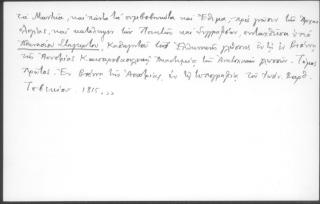 τα Μαντεία, και πάντα τα συμβεβηκότα και Έθιμα, προς γνώσιν της Αρχαιο
λογίας, και κατάληψιν των Ποιητών και Συγγραφέων, συνταχθείσα υπό
Αθανασίου Σταγειρίτου, Καθηγητού της Ελληνικής γλώσσης εν τη εν Βιέννη
της Αυστρίας Καισαροβασιλική Ακαδημία των Ανατολικών γλωσσών. Τόμος
πρώτος. Εν Βιέννη της Αουστρίας, εκ της τυπογραφίας του Ιωάν. Βαρθ.
Τσβεκίου. 1815.